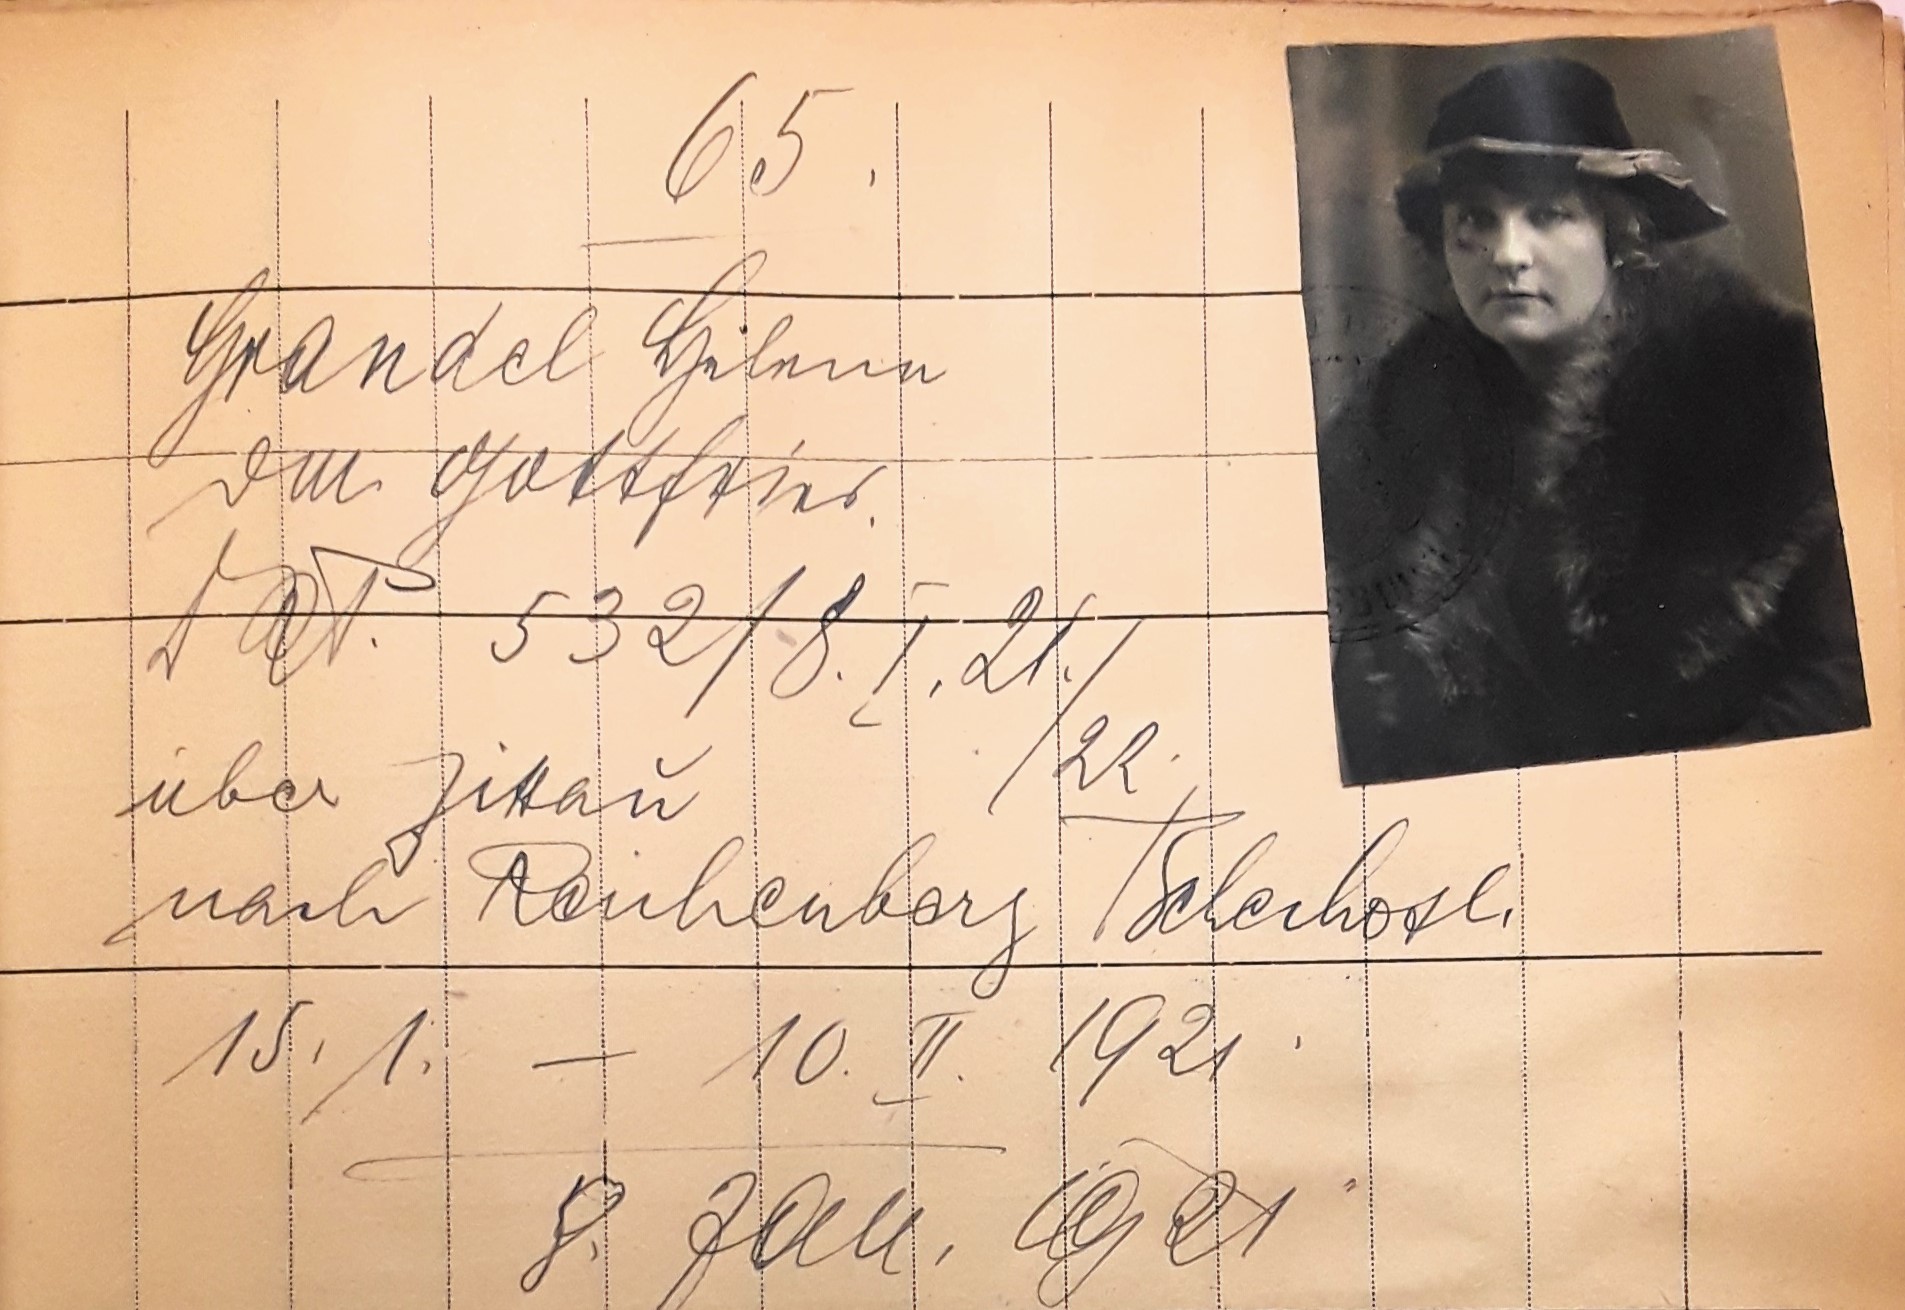 65.
Grandel Helene
Gottfried.
532/8. I. 21./
22.
über Zittau
nach Reichenberg Tschechosl.
15. 1. — 10. II. 1921.
8. Jan. 1921